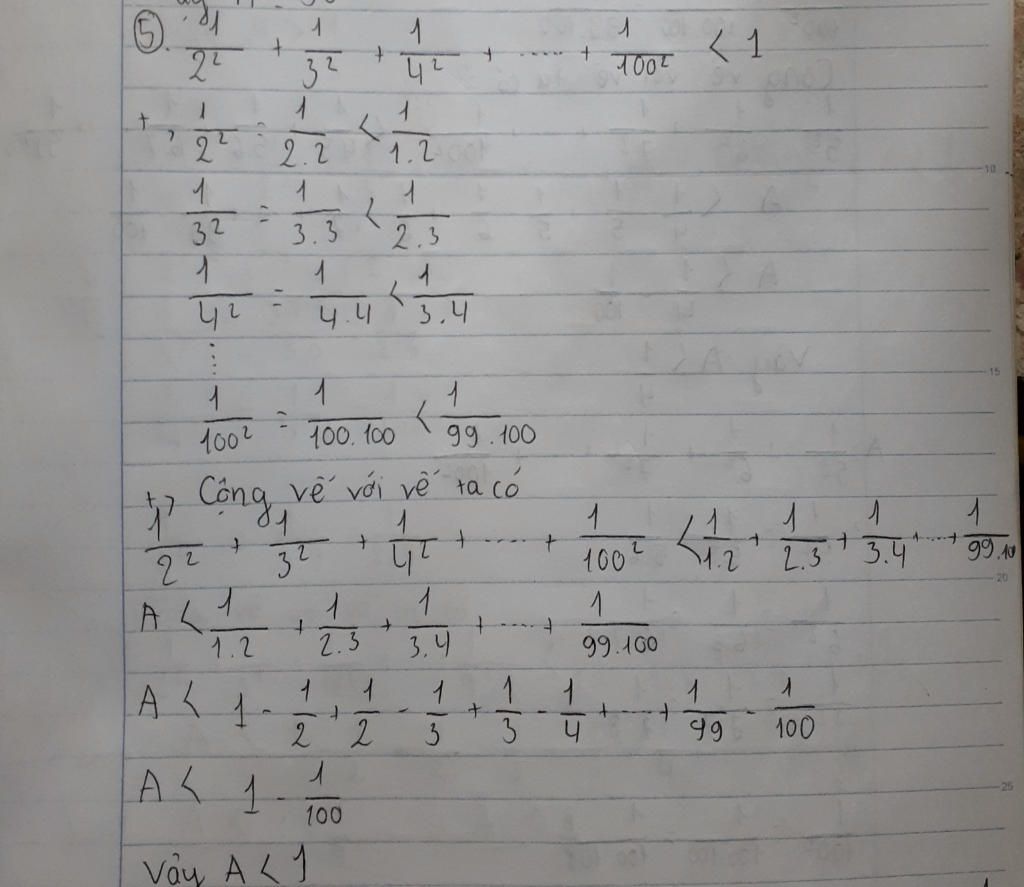 ⑤. 1/2² + 1/3² + 1/4² + ..... + 1/100² < 1
+, 1/2² = 1/2.2 < 1/1.2
1/3² = 1/3.3 < 1/2.3
1/4² = 1/4.4 < 1/3.4
....
1/100² = 1/100.100 < 1/99.100
+, Cộng vế với vế ta có
1/2² + 1/3² + 1/4² + ..... + 1/100² < 1/1.2 + 1/2.3 + 1/3.4 + ... + 1/99.10
A < 1/1.2 + 1/2.3 + 1/3.4 + ..... + 1/99.100
A < 1 - 1/2 + 1/2 - 1/3 + 1/3 - 1/4 + ... + 1/99 - 1/100
A < 1 - 1/100
Vậy A < 1
10
15
20
25